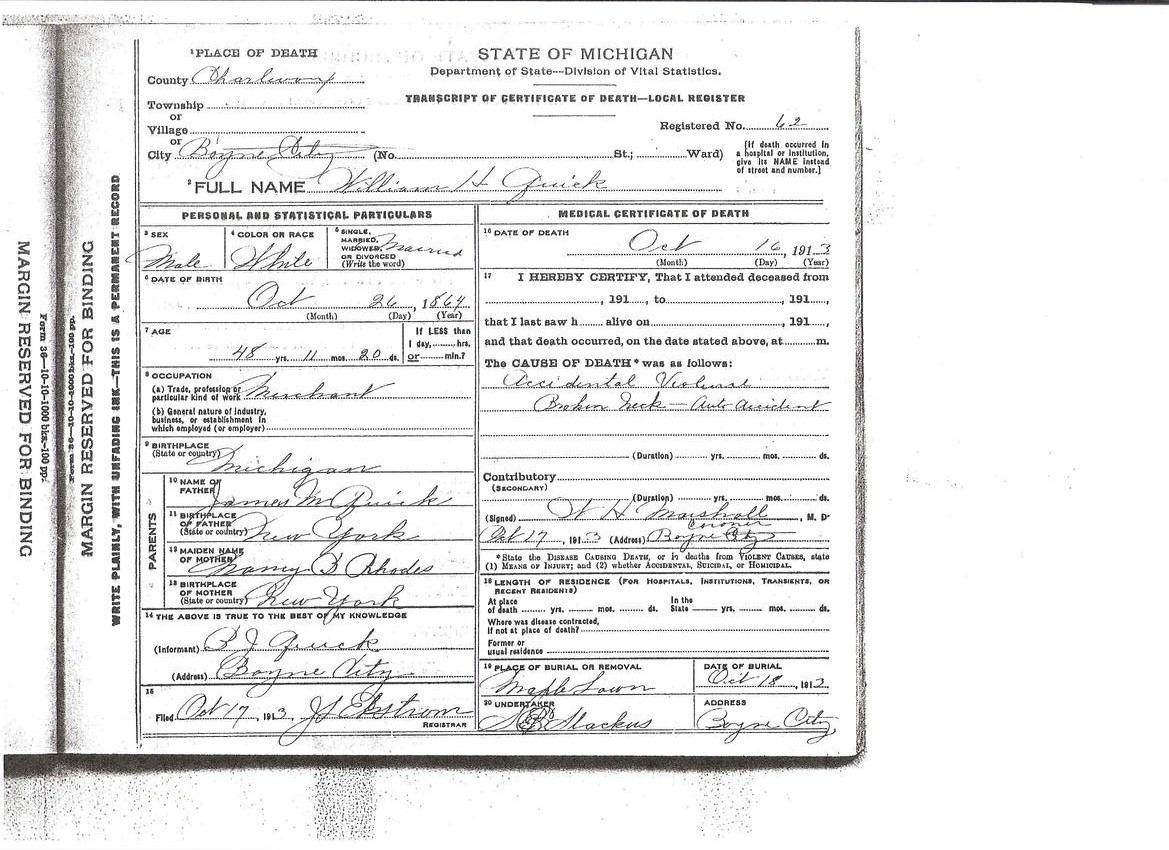 MARGIN RESERVED FOR BINDING
Form 36—10-10-1000 bks-100 pp.
MARGIN RESERVED FOR BINDING
WRITE PLAINLY, WITH UNFADING INK—THIS IS A PERMANENT RECORD
1 PLACE OF DEATH
County Charlevoix
Township
or
Village
or
City Boyne City (No. St.; Ward)
STATE OF MICHIGAN
Department of State—Division of Vital Statistics.
TRANSCRIPT OF CERTIFICATE OF DEATH—LOCAL REGISTER
Registered No. 62
[If death occurred in
a hospital or institution,
give its NAME instead
of street and number.]
2 FULL NAME William H Quick
PERSONAL AND STATISTICAL PARTICULARS
3 SEX Male
4 COLOR OR RACE White
5 SINGLE,
MARRIED,
WIDOWED,
OR DIVORCED
(Write the word) Married
6 DATE OF BIRTH
Oct 26, 1864
(Month) (Day) (Year)
7 AGE
48 yrs. 11 mos. 20 ds.
If LESS than
1 day, hrs.
or min.?
8 OCCUPATION
(a) Trade, profession or
particular kind of work Merchant
(b) General nature of industry,
business, or establishment in
which employed (or employer)
9 BIRTHPLACE
(State or country) Michigan
PARENTS
10 NAME OF
FATHER James M Quick
11 BIRTHPLACE
OF FATHER
(State or country) New York
12 MAIDEN NAME
OF MOTHER Nancy B Rhodes
13 BIRTHPLACE
OF MOTHER
(State or country) New York
14 THE ABOVE IS TRUE TO THE BEST OF MY KNOWLEDGE
(Informant) B J Quick
(Address) Boyne City
15
Filed Oct 17, 1913 J Ekstrom
REGISTRAR
MEDICAL CERTIFICATE OF DEATH
16 DATE OF DEATH
Oct 16, 1913
(Month) (Day) (Year)
17 I HEREBY CERTIFY, That I attended deceased from
, 191 , to , 191 ,
that I last saw h alive on , 191 ,
and that death occurred, on the date stated above, at m.
The CAUSE OF DEATH* was as follows:
Accidental Violence
Broken Neck — Auto Accident
(Duration) yrs. mos. ds.
Contributory
(SECONDARY)
(Duration) yrs. mos. ds.
(Signed) W H Marshall, M. D.
Coroner
Oct 17, 1913 (Address) Boyne City
*State the DISEASE CAUSING DEATH, or in deaths from VIOLENT CAUSES, state
(1) MEANS OF INJURY; and (2) whether ACCIDENTAL, SUICIDAL, OR HOMICIDAL.
18 LENGTH OF RESIDENCE (FOR HOSPITALS, INSTITUTIONS, TRANSIENTS, OR
RECENT RESIDENTS)
At place
of death yrs. mos. ds.
In the
State yrs. mos. ds.
Where was disease contracted,
if not at place of death?
Former or
usual residence
19 PLACE OF BURIAL OR REMOVAL
Maple Lawn
DATE OF BURIAL
Oct 18, 1913
20 UNDERTAKER
Stackus
ADDRESS
Boyne City